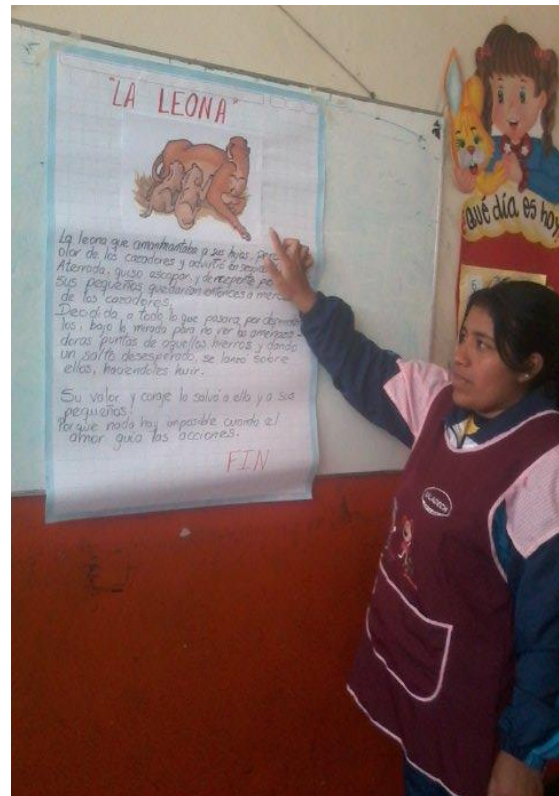 "LA LEONA"
La leona que amamantaba a sus hijos,
olor de los cazadores y advirtió
Aterrada, quiso escapar, y de
sus pequeños quedarían entonces a
de los cazadores.
Decidida a todo lo que pasara, por
los, bajo la mirada para no ver las amenaza-
doras puntas de aquellos hierros y dando
un salto desesperado, se lanzó sobre
ellos, haciéndoles huir.
Su valor y coraje lo salvó a ella y a sus
pequeños.
Porque nada hay imposible cuando el
amor guía las acciones.
FIN
¿Qué día es
ULADECH